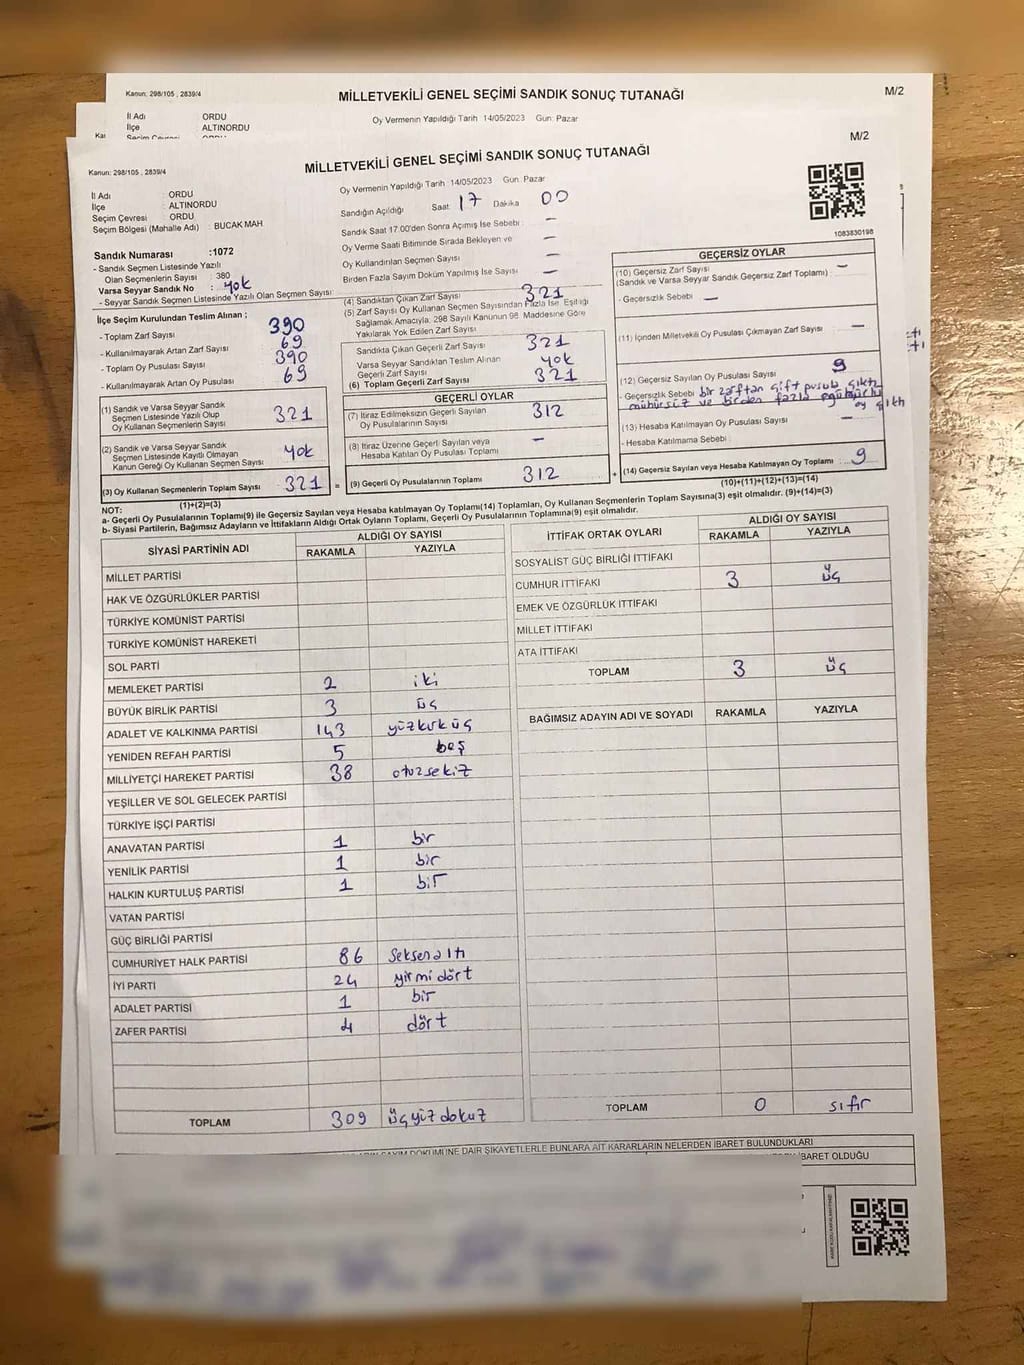 Kanun: 298/105 , 2839/4
MİLLETVEKİLİ GENEL SEÇİMİ SANDIK SONUÇ TUTANAĞI
M/2
İl Adı ORDU
İlçe ALTINORDU
Oy Vermenin Yapıldığı Tarih 14/05/2023 Gün: Pazar
M/2
MİLLETVEKİLİ GENEL SEÇİMİ SANDIK SONUÇ TUTANAĞI
Kanun: 298/105 , 2839/4
Oy Vermenin Yapıldığı Tarih 14/05/2023 Gün: Pazar
İl Adı : ORDU
İlçe : ALTINORDU
Seçim Çevresi : ORDU
Seçim Bölgesi (Mahalle Adı) : BUCAK MAH
Sandığın Açıldığı Saat 17 Dakika 00
Sandık Saat 17:00'den Sonra Açımış İse Sebebi : -
Oy Verme Saati Bitiminde Sırada Bekleyen ve
Oy Kullandırılan Seçmen Sayısı : -
Birden Fazla Sayım Döküm Yapılmış İse Sayısı : -
1083830198
Sandık Numarası :1072
- Sandık Seçmen Listesinde Yazılı
Olan Seçmenlerin Sayısı : 380
Varsa Seyyar Sandık No : yok
- Seyyar Sandık Seçmen Listesinde Yazılı Olan Seçmen Sayısı:
İlçe Seçim Kurulundan Teslim Alınan ;
- Toplam Zarf Sayısı 390
- Kullanılmayarak Artan Zarf Sayısı 69
- Toplam Oy Pusulası Sayısı 390
- Kullanılmayarak Artan Oy Pusulası 69
(1) Sandık ve Varsa Seyyar Sandık
Seçmen Listesinde Yazılı Olup
Oy Kullanan Seçmenlerin Sayısı 321
(2) Sandık ve Varsa Seyyar Sandık
Seçmen Listesinde Kayıtlı Olmayan
Kanun Gereği Oy Kullanan Seçmen Sayısı yok
(3) Oy Kullanan Seçmenlerin Toplam Sayısı 321 =
(1)+(2)=(3)
(4) Sandıktan Çıkan Zarf Sayısı 321
(5) Zarf Sayısı Oy Kullanan Seçmen Sayısından Fazla İse, Eşitliği
Sağlamak Amacıyla, 298 Sayılı Kanunun 98. Maddesine Göre
Yakılarak Yok Edilen Zarf Sayısı
Sandıkta Çıkan Geçerli Zarf Sayısı 321
Varsa Seyyar Sandıktan Teslim Alınan
Geçerli Zarf Sayısı yok
(6) Toplam Geçerli Zarf Sayısı 321
GEÇERLİ OYLAR
(7) İtiraz Edilmeksizin Geçerli Sayılan
Oy Pusulalarının Sayısı 312
(8) İtiraz Üzerine Geçerli Sayılan veya
Hesaba Katılan Oy Pusulası Toplamı -
(9) Geçerli Oy Pusulalarının Toplamı 312 +
GEÇERSİZ OYLAR
(10) Geçersiz Zarf Sayısı : -
(Sandık ve Varsa Seyyar Sandık Geçersiz Zarf Toplamı)
- Geçersizlik Sebebi : -
(11) İçinden Milletvekili Oy Pusulası Çıkmayan Zarf Sayısı : -
(12) Geçersiz Sayılan Oy Pusulası Sayısı : 9
- Geçersizlik Sebebi bir zarftan çift pusula çıktı
mühürsüz ve birden fazla mühürlü
oy çıktı
(13) Hesaba Katılmayan Oy Pusulası Sayısı : -
- Hesaba Katılmama Sebebi :
(14) Geçersiz Sayılan veya Hesaba Katılmayan Oy Toplamı : 9
(10)+(11)+(12)+(13)=(14)
NOT:
a- Geçerli Oy Pusulalarının Toplamı(9) ile Geçersiz Sayılan veya Hesaba katılmayan Oy Toplamı(14) Toplamları, Oy Kullanan Seçmenlerin Toplam Sayısına(3) eşit olmalıdır. (9)+(14)=(3)
b- Siyasi Partilerin, Bağımsız Adayların ve İttifakların Aldığı Ortak Oyların Toplamı, Geçerli Oy Pusulalarının Toplamına(9) eşit olmalıdır.
SİYASİ PARTİNİN ADI ALDIĞI OY SAYISI
RAKAMLA YAZIYLA
MİLLET PARTİSİ
HAK VE ÖZGÜRLÜKLER PARTİSİ
TÜRKİYE KOMÜNİST PARTİSİ
TÜRKİYE KOMÜNİST HAREKETİ
SOL PARTİ
MEMLEKET PARTİSİ 2 iki
BÜYÜK BİRLİK PARTİSİ 3 üç
ADALET VE KALKINMA PARTİSİ 143 yüzkırküç
YENİDEN REFAH PARTİSİ 5 beş
MİLLİYETÇİ HAREKET PARTİSİ 38 otuzsekiz
YEŞİLLER VE SOL GELECEK PARTİSİ
TÜRKİYE İŞÇİ PARTİSİ
ANAVATAN PARTİSİ 1 bir
YENİLİK PARTİSİ 1 bir
HALKIN KURTULUŞ PARTİSİ 1 bir
VATAN PARTİSİ
GÜÇ BİRLİĞİ PARTİSİ
CUMHURİYET HALK PARTİSİ 86 seksenaltı
İYİ PARTİ 24 yirmidört
ADALET PARTİSİ 1 bir
ZAFER PARTİSİ 4 dört
TOPLAM 309 üçyüzdokuz
İTTİFAK ORTAK OYLARI ALDIĞI OY SAYISI
RAKAMLA YAZIYLA
SOSYALİST GÜÇ BİRLİĞİ İTTİFAKI
CUMHUR İTTİFAKI 3 üç
EMEK VE ÖZGÜRLÜK İTTİFAKI
MİLLET İTTİFAKI
ATA İTTİFAKI
TOPLAM 3 üç
BAĞIMSIZ ADAYIN ADI VE SOYADI RAKAMLA YAZIYLA
TOPLAM 0 sıfır
DÖKÜMÜNE DAİR ŞİKAYETLERLE BUNLARA AİT KARARLARIN NELERDEN İBARET BULUNDUKLARI
İBARET OLDUĞU